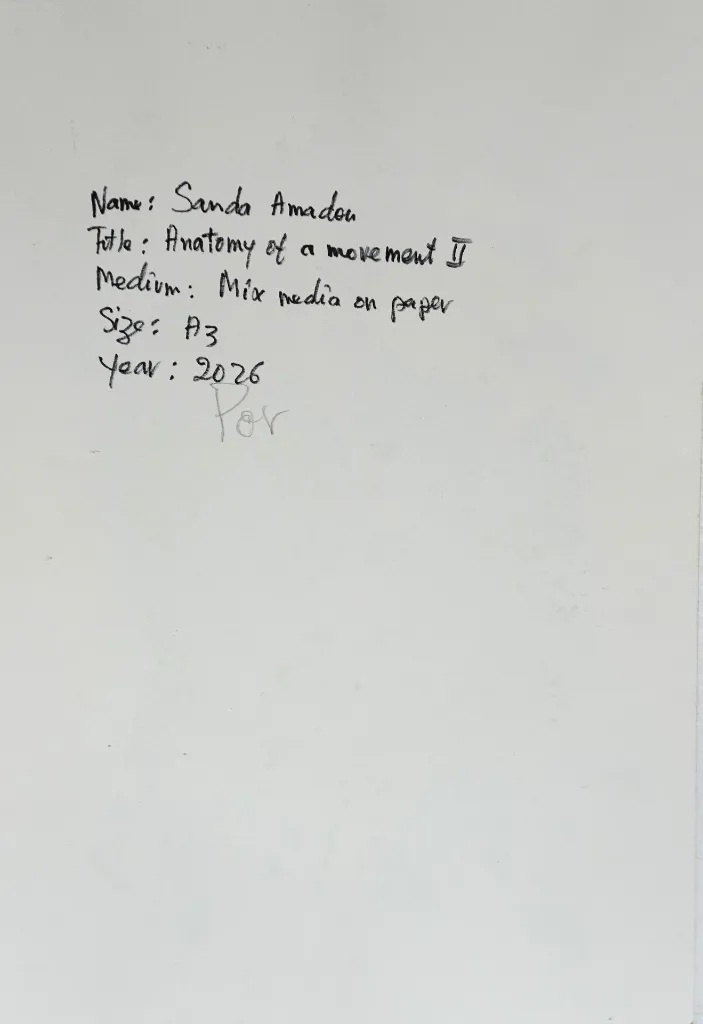 Name: Sanda Amadou
Title: Anatomy of a movement II
Medium: Mix media on paper
Size: A3
Year: 2026
Por